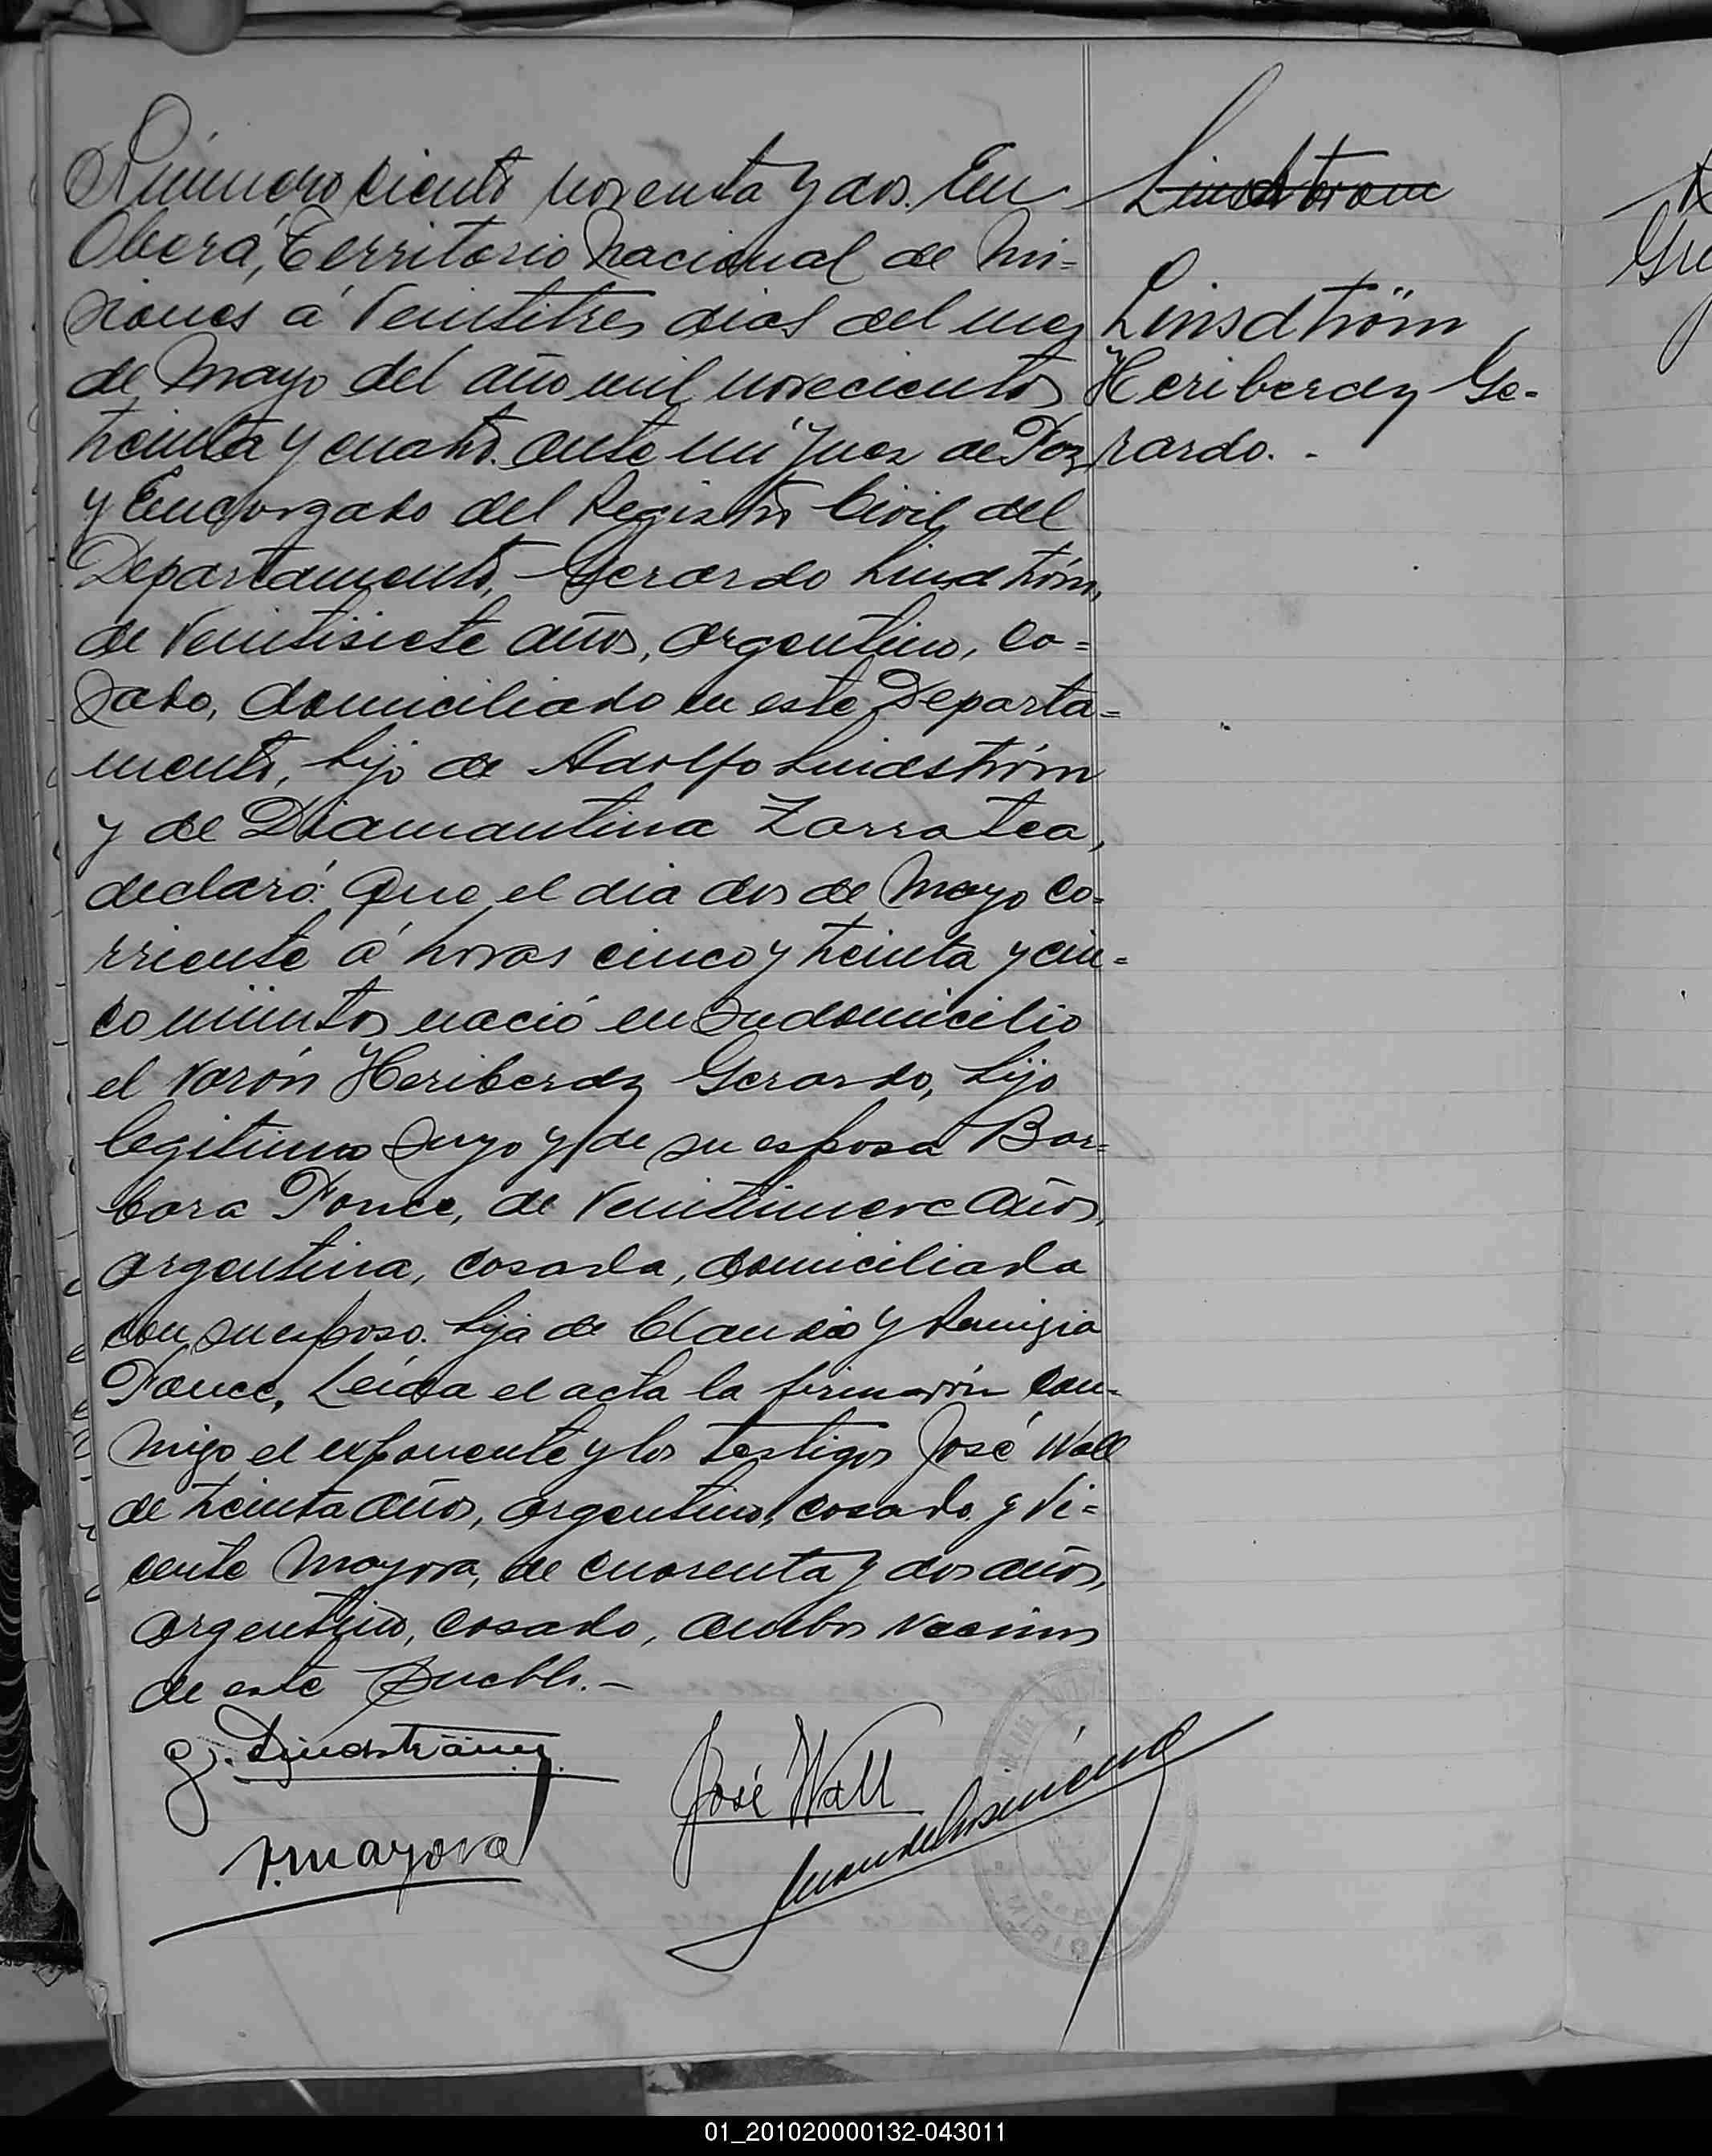 Número ciento noventa y dos. En
Oberá, Territorio Nacional de Mi=
siones á Veintitres dias del mes
de Mayo del año mil novecientos
treinta y cuatro. ante mi Juez de Paz
y Encargado del Registro Civil del
Departamento, - Gerardo Linsdtröm,
de Veintisiete años, argentino, ca=
sado, domiciliado en este Departa=
mento, hijo de Adolfo Lindström
y de Diamantina Zarratea,
declaró: Que el dia dos de Mayo co-
rriente á horas cinco y treinta y cin-
co minutos nació en su domicilio
el varón Heriberdy Gerardo, hijo
legitimo suyo y de su esposa Bar=
bara Ponce, de Veintinueve años,
argentina, casada, domiciliada
con su esposo. hija de Claudio y Remigia
Ponce, Leida el acta la firmarón con-
migo el exponente y los testigos José Wall
de treinta años, argentino, casado y Vi=
cente Mayora, de cuarenta y dos años,
argentino, casado, ambos vecinos
de este pueblo.-
G. Lindström
José Wall
V. Mayora
Linsdtrom
Linsdtröm
Heriberdy Ge-
rardo. -
Gre
01_201020000132-043011